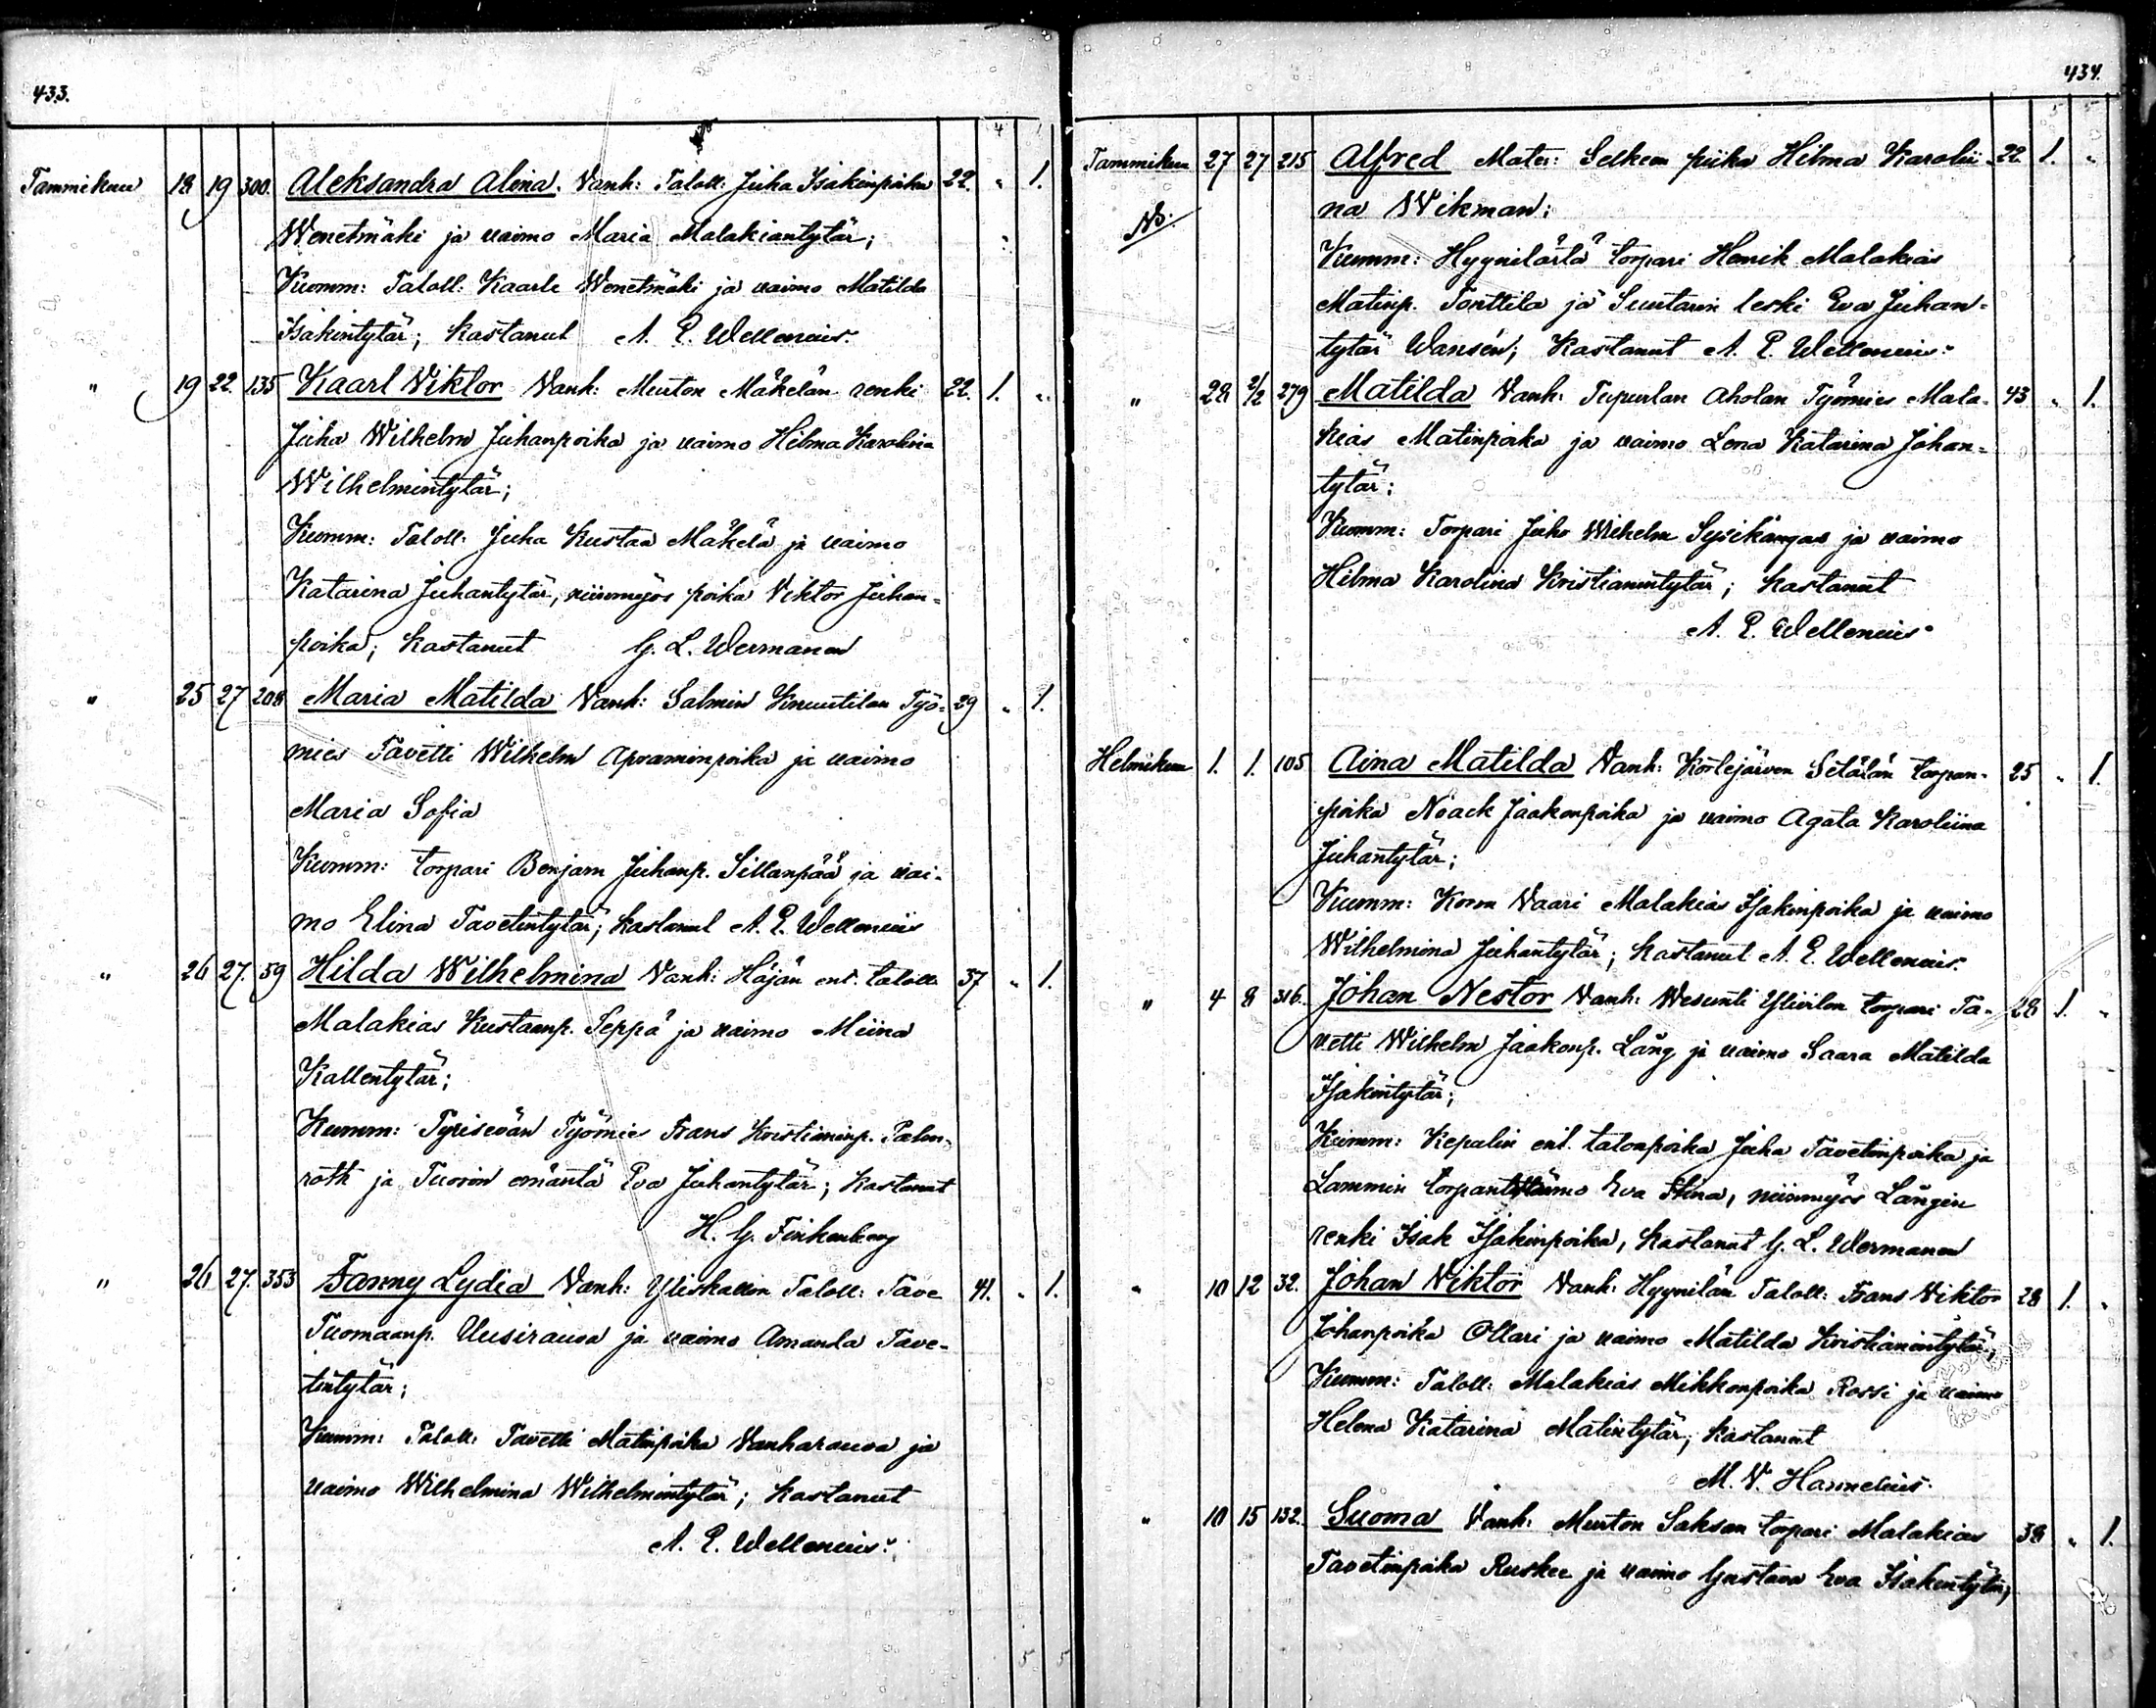 433.
Tammikuu 18 19 300. Aleksandra Alina. Vanh: Taloll: Juha Isakinpoika 22. " 1.
Wenetmäki ja vaimo Maria Malakiantytär;
Kumm: Taloll: Kaarle Wenetmäki ja vaimo Matilda
Isakintytär; kastanut A. E. Wellenius.
" 19 22. 135 Kaarl Viktor Vanh: Murton Mäkelän renki 22. 1. "
Juha Wilhelm Juhanpoika ja vaimo Hilma Karolina
Wilhelmintytär;
Kumm: Taloll: Juha Kustaa Mäkelä ja vaimo
Katarina Juhantytär, niinmyös poika Viktor Juhan-
poika; kastanut G. L. Wermanen
" 25 27 208 Maria Matilda Vanh: Salmin Knuutilan Työ- 29 " 1.
mies Tavetti Wilhelm Apraminpoika ja vaimo
Maria Sofia
Kumm: torpari Benjam Juhanp. Sillanpää ja vai-
mo Elina Tavetintytär; kastanut A. E. Wellenius
" 26 27. 59 Hilda Wilhelmina Vanh: Häjän ent. taloll: 37 " 1.
Malakias Kustaanp. Seppä ja vaimo Miina
Kallentytär;
Kumm: Tyrisevän Työmies Frans Kristianinp. Palm-
roth ja Tuorin emäntä Eva Juhantytär; kastanut
H. G. Finkenberg
" 26 27. 353 Fanny Lydia Vanh: Yliskallon Taloll: Tave 41. " 1.
Tuomaanp. Uusirauva ja vaimo Amanda Tave-
tintytär;
Kumm: Taloll: Tavetti Matinpoika Vanharauva ja
vaimo Wilhelmina Wilhelmintytär; kastanut
A. E. Wellenius.
434.
Tammikuu 27 27 215 Alfred Mater: Selkeen piika Hilma Karolii- 22 1. "
NB. na Wikman;
Kumm: Hyynilästä torpari Henrik Malakias
Matinp. Tonttila ja Suutarin leski Eva Juhan-
tytär Wansén; kastanut A. E. Wellenius.
" 28 2/2 279 Matilda Vanh: Tupurlan Aholan Työmies Mala- 43 " 1.
kias Matinpoika ja vaimo Lena Katarina Johan-
tytär;
Kumm: Torpari Juho Wilhelm Sysikangas ja vaimo
Hilma Karolina Kristianintytär; kastanut
A. E. Wellenius
Helmikuu 1. 1. 105 Aina Matilda Vanh: Kortejärven Setälän torpan- 25 " 1.
poika Noack Jaakonpoika ja vaimo Agata Karoliina
Juhantytär;
Kumm: Vaari Malakias Isakinpoika ja vaimo
Wilhelmina Juhantytär; kastanut A. E. Wellenius.
" 4 8 316. Johan Nestor Vanh: Wesunti torpari Ta- 28 1. "
vetti Wilhelm Jaakonp. Lång ja vaimo Saara Matilda
Isakintytär;
Kumm: ent. talonpoika Juha Tavetinpoika ja
Lammin Eva Stina, niinmyös Långin
renki Isak Isakinpoika, kastanut G. L. Wermanen
" 10 12 32. Johan Viktor Vanh: Hyynilän Taloll: Frans Viktor 28 1. "
Johanpoika Ollari ja vaimo Matilda Kristianintytär;
Kumm: Taloll: Malakias Mikkonpoika Rossi ja vaimo
Helena Katarina Matintytär; kastanut
M. V. Hannelius.
" 10 15 132. Suoma Vanh: Murton Saksan torpari Malakias 38 " 1.
Tavetinpoika Ruskee ja vaimo Gustava Eva Isakintytär;